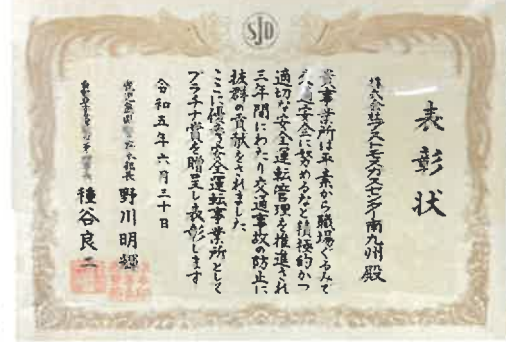 SJD
表彰状
株式会社アストモスガスセンター南九州 殿
貴事業所は平素から職場ぐるみで
交通安全に努めるなど積極的かつ
適切な安全運転管理を推進され
三年間にわたり交通事故の防止に
抜群の貢献をされました
ここに優秀安全運転事業所として
プラチナ賞を贈呈し表彰します
令和五年六月三十日
本部長 野川明輝
種谷良二